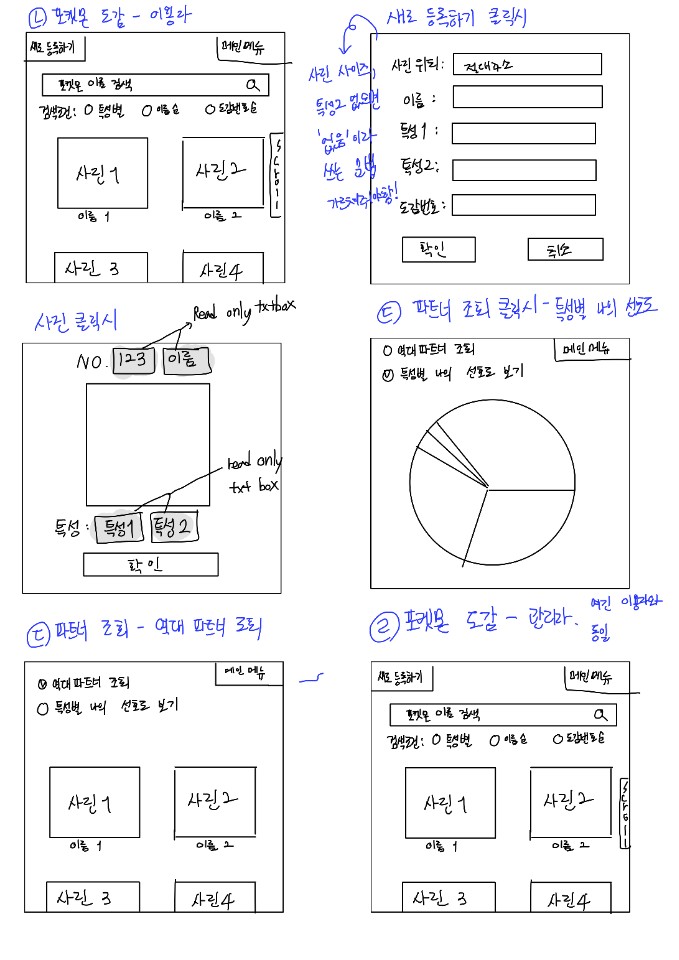 ㄴ 포켓몬 도감 - 이용자
새로 등록하기
메인메뉴
포켓몬 이름 검색
검색조건: 특성별 이름순 도감번호순
사진 1
사진 2
이름 1
이름 2
스크롤
사진 3
사진 4
새로 등록하기 클릭시
사진 사이즈,
특성2 없으면
'없음'이라
쓰는 방법
가르쳐줘야함!
사진 위치: 절대주소
이름:
특성1:
특성2:
도감번호:
확인
취소
사진 클릭시
Read only txtbox
NO. 123 이름
read only
txt box
특성: 특성1 특성2
확인
ㄷ 파트너 조회 클릭시 - 특성별 나의 선호도
역대 파트너 조회
메인 메뉴
특성별 나의 선호도 보기
ㄷ 파트너 조회 - 역대 파트너 조회
메인 메뉴
역대 파트너 조회
특성별 나의 선호도 보기
사진 1
사진 2
이름 1
이름 2
사진 3
사진 4
ㄹ 포켓몬 도감 - 관리자.
여긴 이용자와
동일
새로 등록하기
메인메뉴
포켓몬 이름 검색
검색조건: 특성별 이름순 도감번호순
사진 1
사진 2
이름 1
이름 2
스크롤
사진 3
사진 4